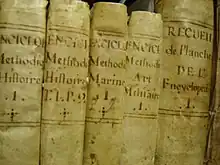 ENCICLO
Methodi
Histoire
.1.
ENCICLO
Methodi
Histoire
T.I.P.2
ENCICLO
Methodi
Marine
.1.
ENCICLO
Methodi
Art
Militaire
.1.
RECUEIL
de Planche
DE L'
Encyclopedi
.1.